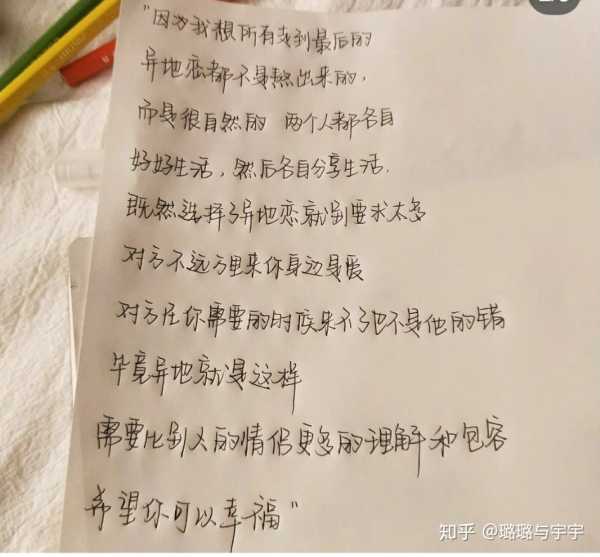 "因为我想所有走到最后的
异地恋都不是熬出来的，
而是很自然的 两个人都各自
好好生活，然后各自分享生活.
既然选择了异地恋就别要求太多
对方不远万里来你身边是爱
对方在你需要的时候来不了也不是他的错
毕竟异地就是这样
需要比别人的情侣更多的理解和包容
希望你可以幸福"
知乎 @璐璐与宇宇